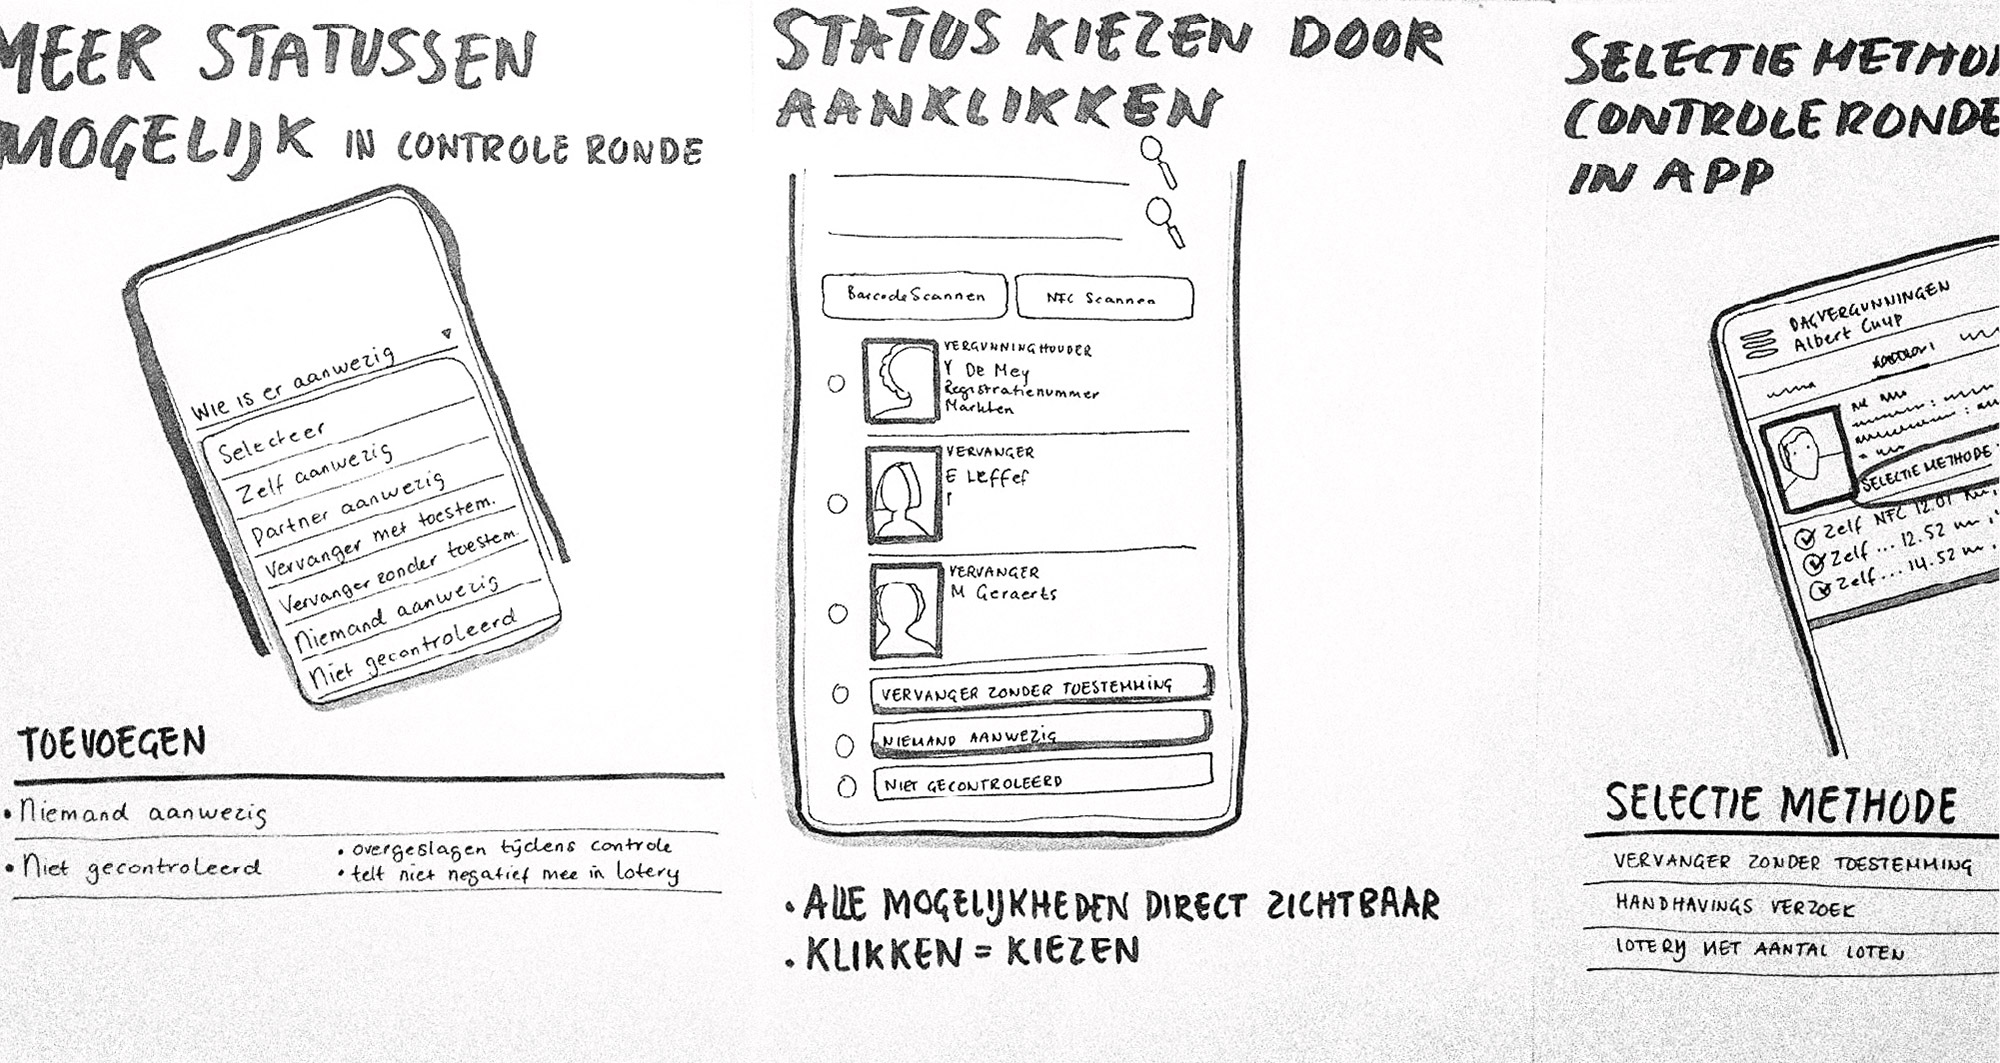 MEER STATUSSEN
MOGELIJK IN CONTROLE RONDE
Wie is er aanwezig
Selecteer
Zelf aanwezig
Partner aanwezig
Vervanger met toestem.
Vervanger zonder toestem.
Niemand aanwezig
Niet gecontroleerd
TOEVOEGEN
• Niemand aanwezig
• Niet gecontroleerd
• overgeslagen tijdens controle
• telt niet negatief mee in lotery
STATUS KIEZEN DOOR
AANKLIKKEN
Barcode Scannen
NFC Scannen
VERGUNNINGHOUDER
Y De Mey
Registratienummer
Markten
VERVANGER
E Leffef
VERVANGER
M Geraerts
VERVANGER ZONDER TOESTEMMING
NIEMAND AANWEZIG
NIET GECONTROLEERD
• ALLE MOGELIJKHEDEN DIRECT ZICHTBAAR
• KLIKKEN = KIEZEN
SELECTIE METHO
CONTROLE RONDE
IN APP
DAGVERGUNNINGEN
Albert Cuyp
SELECTIE METHODE
Zelf NFC 12.01
Zelf ... 12.52
Zelf ... 14.52
SELECTIE METHODE
VERVANGER ZONDER TOESTEMMING
HANDHAVINGS VERZOEK
LOTERY MET AANTAL LOTEN